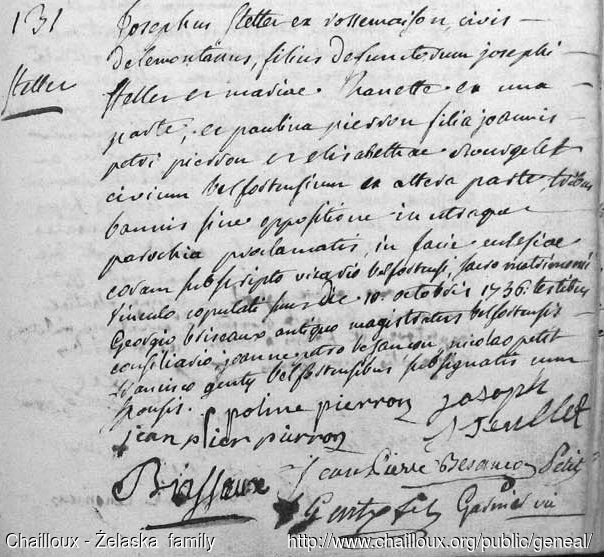 131
Steller
Josephus Steller ex rossemaison, civis
delemontanus, filius defunctorum josephi
steller et mariae Nanette ex una
parte, et paulina pierron filia joannis
petri pierron et elisabethae Bourgelet
civium belfortensium ex altera parte, tribus
bannis sine oppositione in utraque
parochia proclamatis, in facie ecclesiae
coram subscripto vicario belfortensi, sacro matrimonii
vinculo copulati sunt die 10 octobris 1736. testibus
Georgio briseaux antiquo magistratus belfortensis
consiliario, joanne petro besançon, nicolao petit
francisco genty belfortensibus subsignatis cum
sponsis. poline pierron joseph
jean pier pierron Steullet
Brissaux jean Pierre Besancon Petit
Genty Garnier vic
Chailloux - Želaska family http://www.chailloux.org/public/geneal/